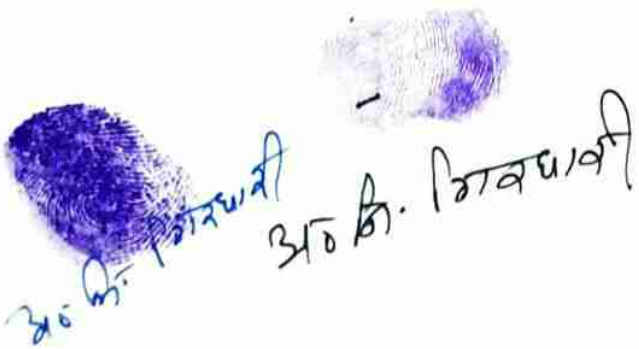 अ० नि. गिरधारी
अ० नि. गिरधारी